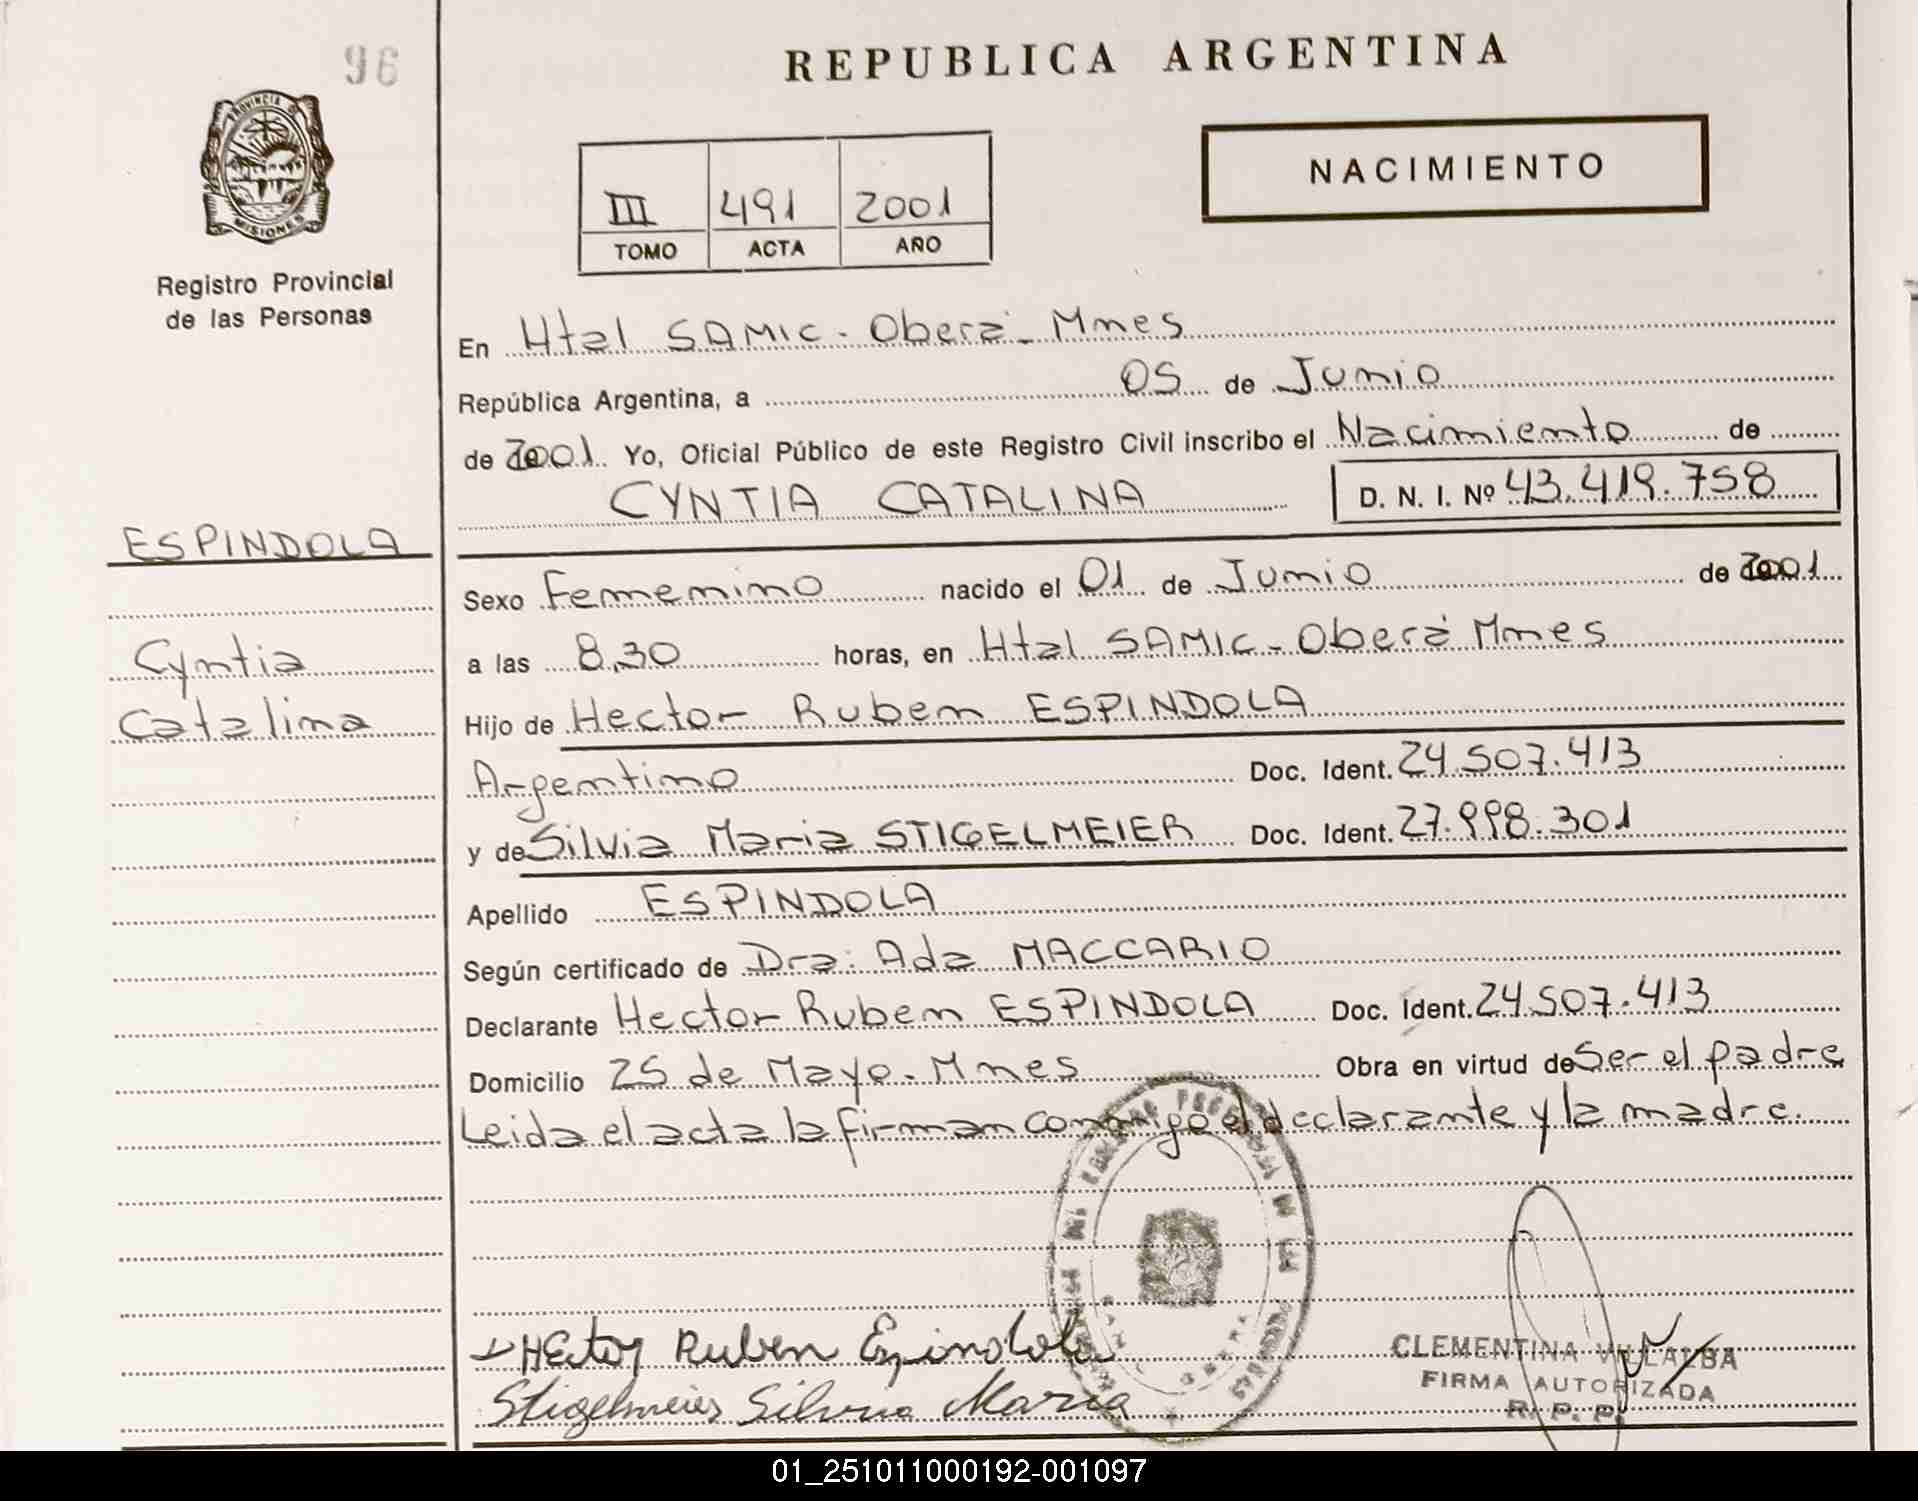 96
REPUBLICA ARGENTINA
PROVINCIA DE
MISIONES
NACIMIENTO
III 491 2001
TOMO ACTA AÑO
Registro Provincial
de las Personas
En Htal SAMIC - Oberá - Mnes
República Argentina, a 05 de Junio
de 2001 Yo, Oficial Público de este Registro Civil inscribo el Nacimiento de
CYNTIA CATALINA D. N. I. Nº 43.419.758
ESPINDOLA
Sexo Femenino nacido el 01 de Junio de 2001
Cyntia
a las 8,30 horas, en Htal SAMIC - Oberá Mnes
Catalina
Hijo de Hector Ruben ESPINDOLA
Argentino Doc. Ident. 24.507.413
y de Silvia Maria STIGELMEIER Doc. Ident. 27.998.301
Apellido ESPINDOLA
Según certificado de Dra: Ada MACCARIO
Declarante Hector Ruben ESPINDOLA Doc. Ident. 24.507.413
Domicilio 25 de Mayo - Mnes Obra en virtud de Ser el padre
Leida el acta la firman conmigo el declarante y la madre.
Hector Ruben Espindola
Stigelmeier Silvia Maria
CLEMENTINA VILLALBA
FIRMA AUTORIZADA
R. P. P.
01_251011000192-001097